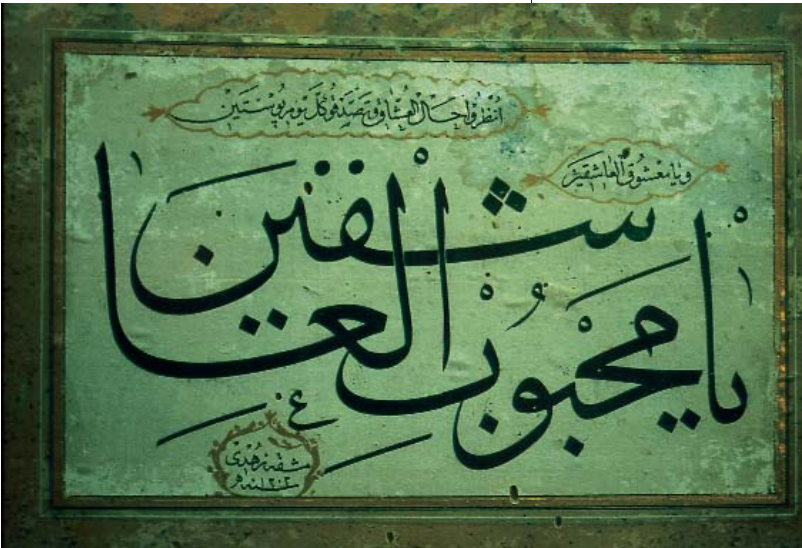 انظروا حال العشاق وتصدقوا كل يوم بوستين
ويا معشوق العاشقين
يا محبوب العاشقين
مشقه زهدى
سنه ١٢٠٢